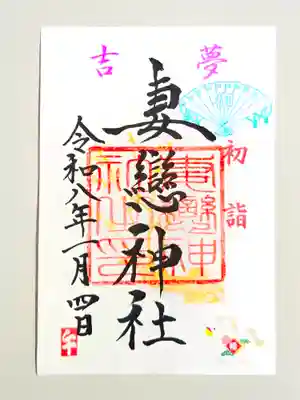 吉夢
初詣
妻戀神社
令和八年一月四日
午